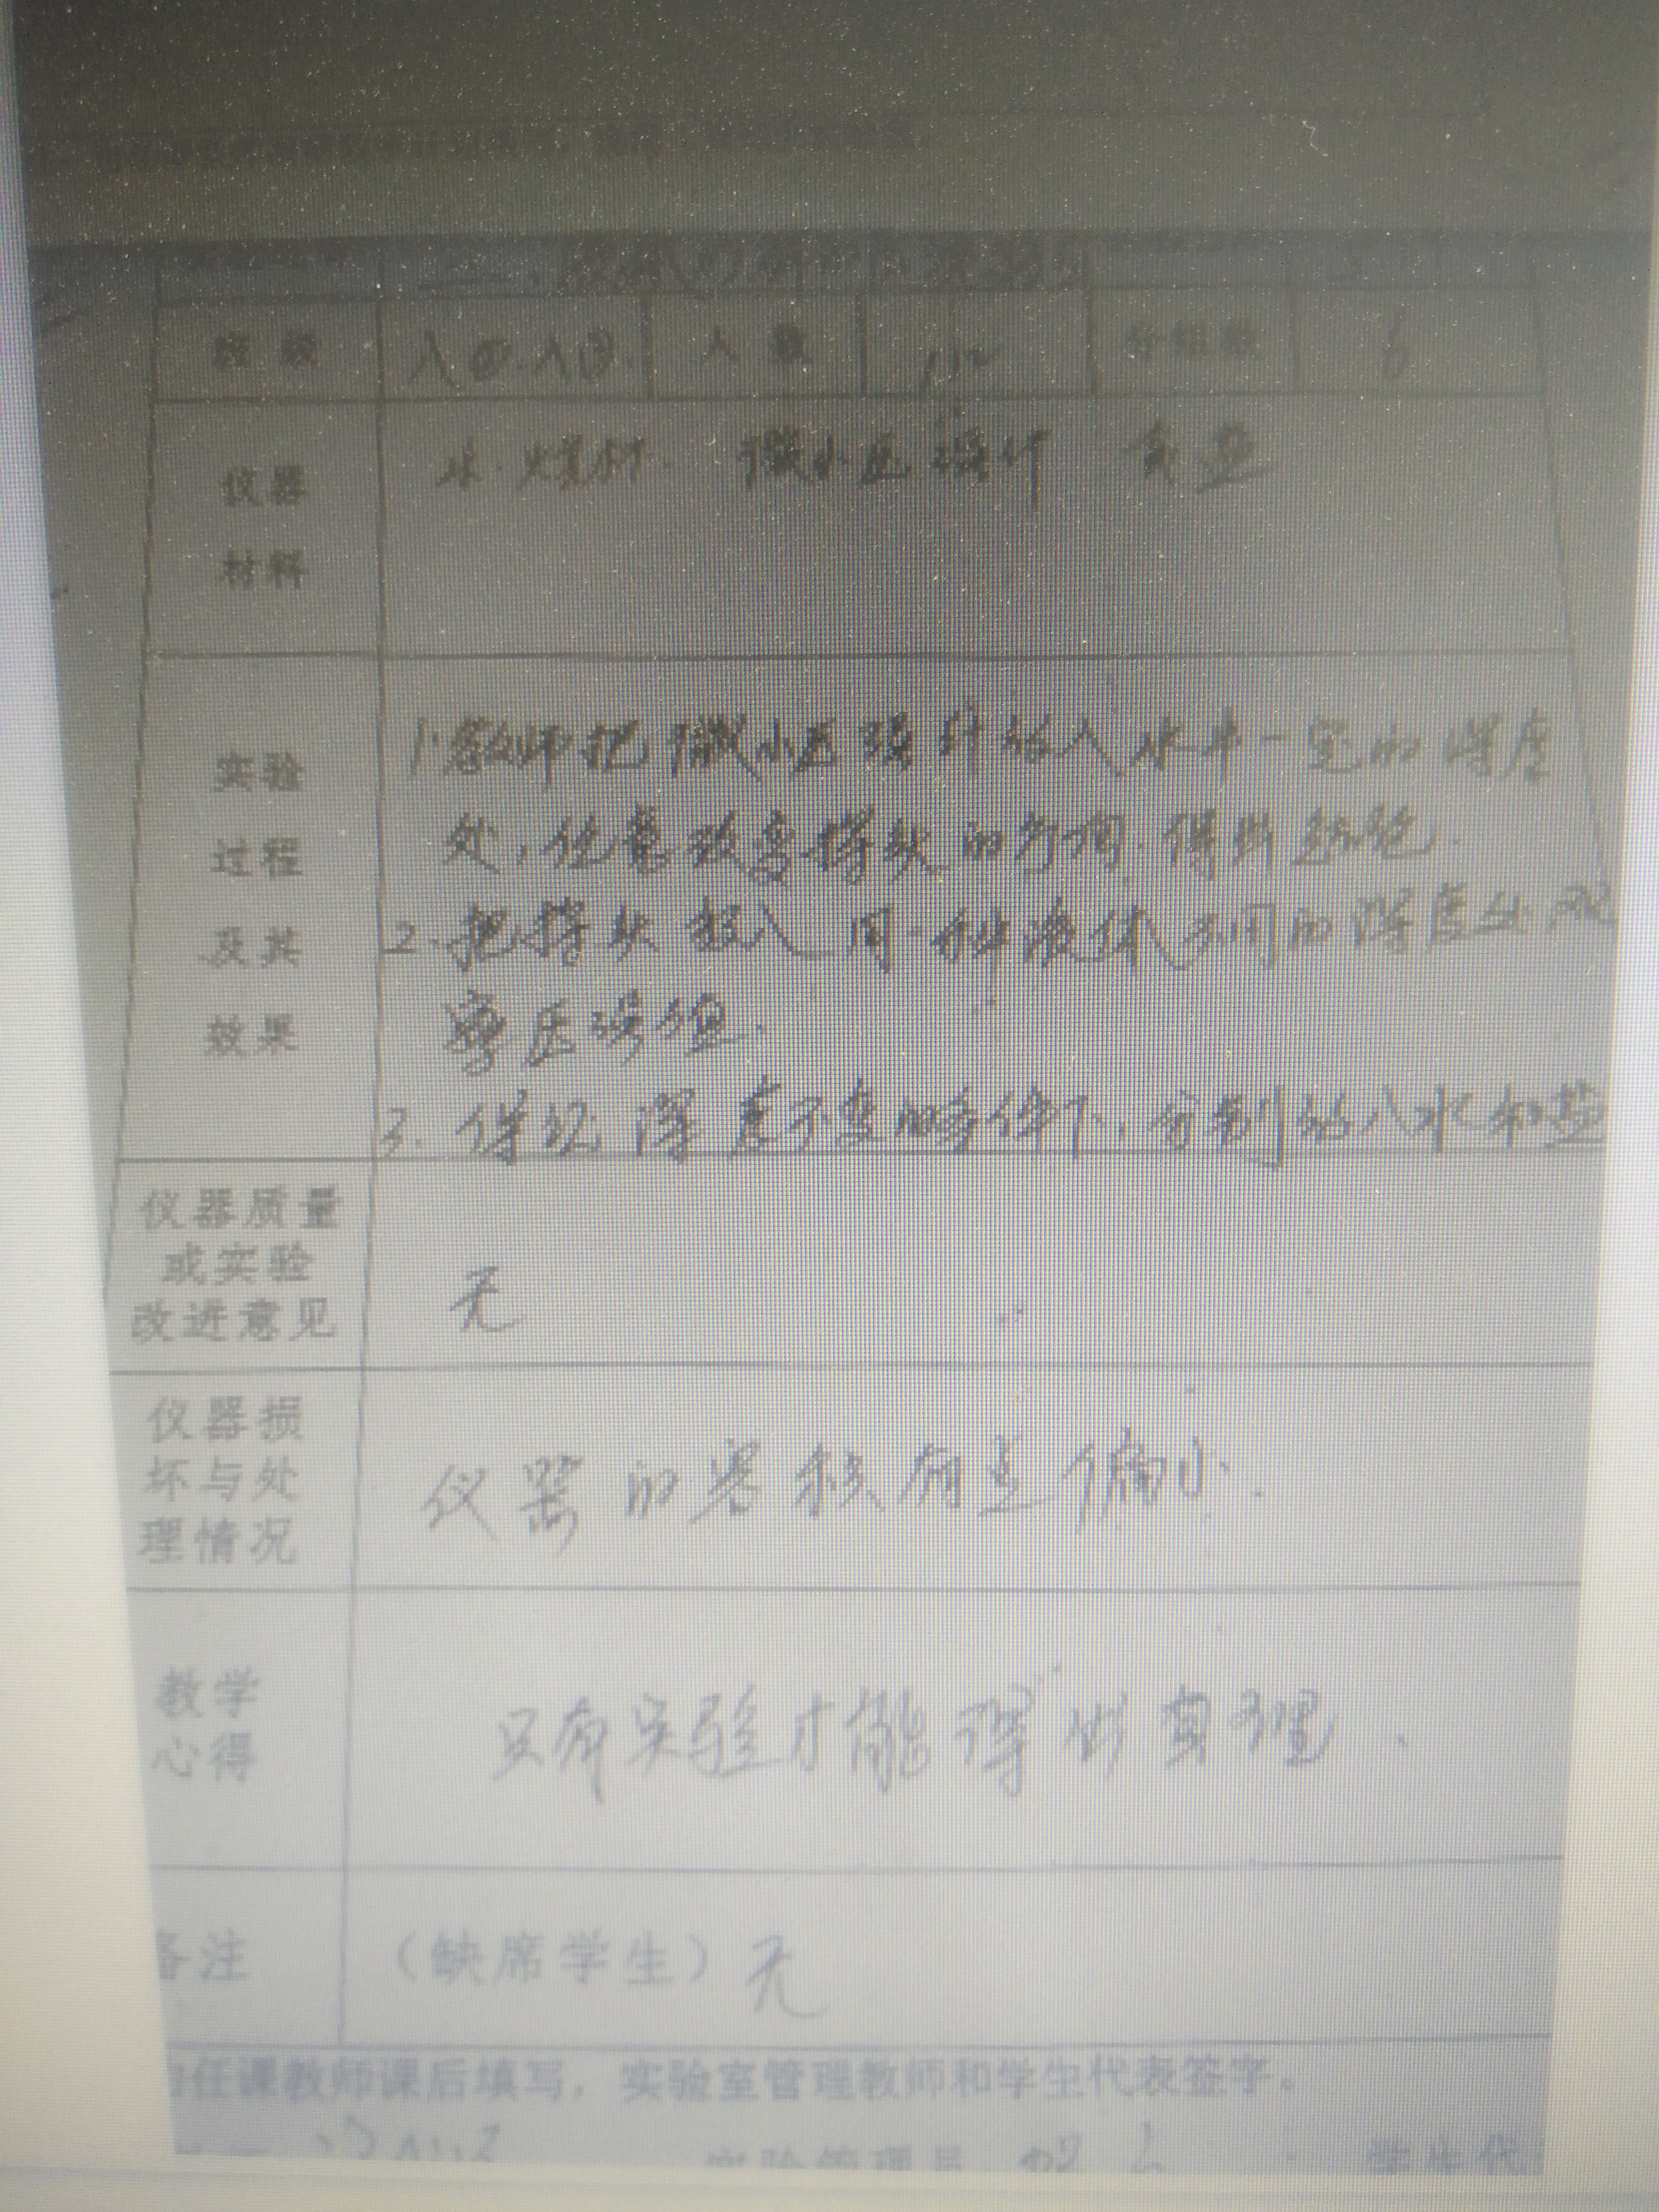 班 级 八 人 数 112 分组数 6
仪器 水 烧杯 微小压强计 食盐
材料
实验 1.教师把微小压强计放入水中一定的深度
过程 处,任意改变探头的方向.得出结论.
及其 2.把探头放入同一种液体不同的深度处观
效果 察压强值.
3.保证深度不变的条件下,分别放入水和盐
仪器质量
或实验 无
改进意见
仪器损
坏与处 仪器的容积有点偏小.
理情况
教学 只有实验才能得出真理.
心得
备注 (缺席学生)无
任课教师课后填写,实验室管理教师和学生代表签字。
实验管理员 学生代